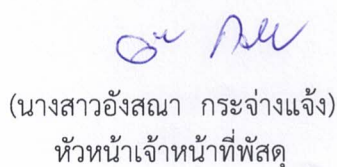 (นางสาวอังสณา กระจ่างแจ้ง)
หัวหน้าเจ้าหน้าที่พัสดุ